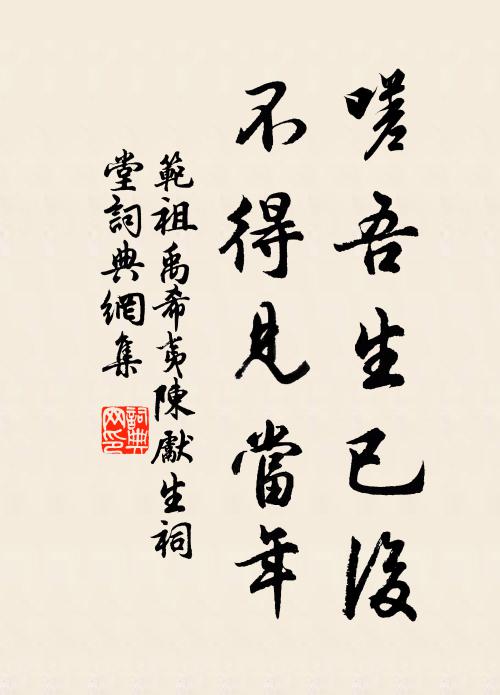 嗟吾生已後
不得見當年
範祖禹希夷陳獻生祠
堂詞典網集
詞典
网印